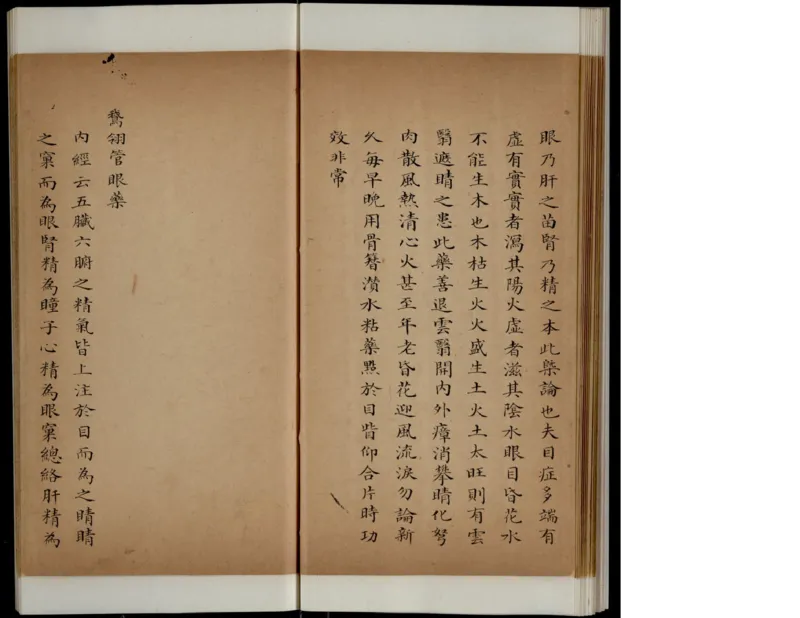 眼乃肝之苗腎乃精之本此槩論也夫目症多端有
虛有實實者瀉其陽火虛者滋其陰水眼目昏花水
不能生木也木枯生火火盛生土火土太旺則有雲
翳遮睛之患此藥善退雲翳開內外瘴消攀睛化弩
肉散風熱清心火甚至年老昏花迎風流淚勿論新
久每早晚用骨簪蘸水粘藥點於目眥仰合片時功
效非常
鵞翎管眼藥
內經云五臟六腑之精氣皆上注於目而為之睛睛
之窠而為眼腎精為瞳子心精為眼窠總絡肝精為